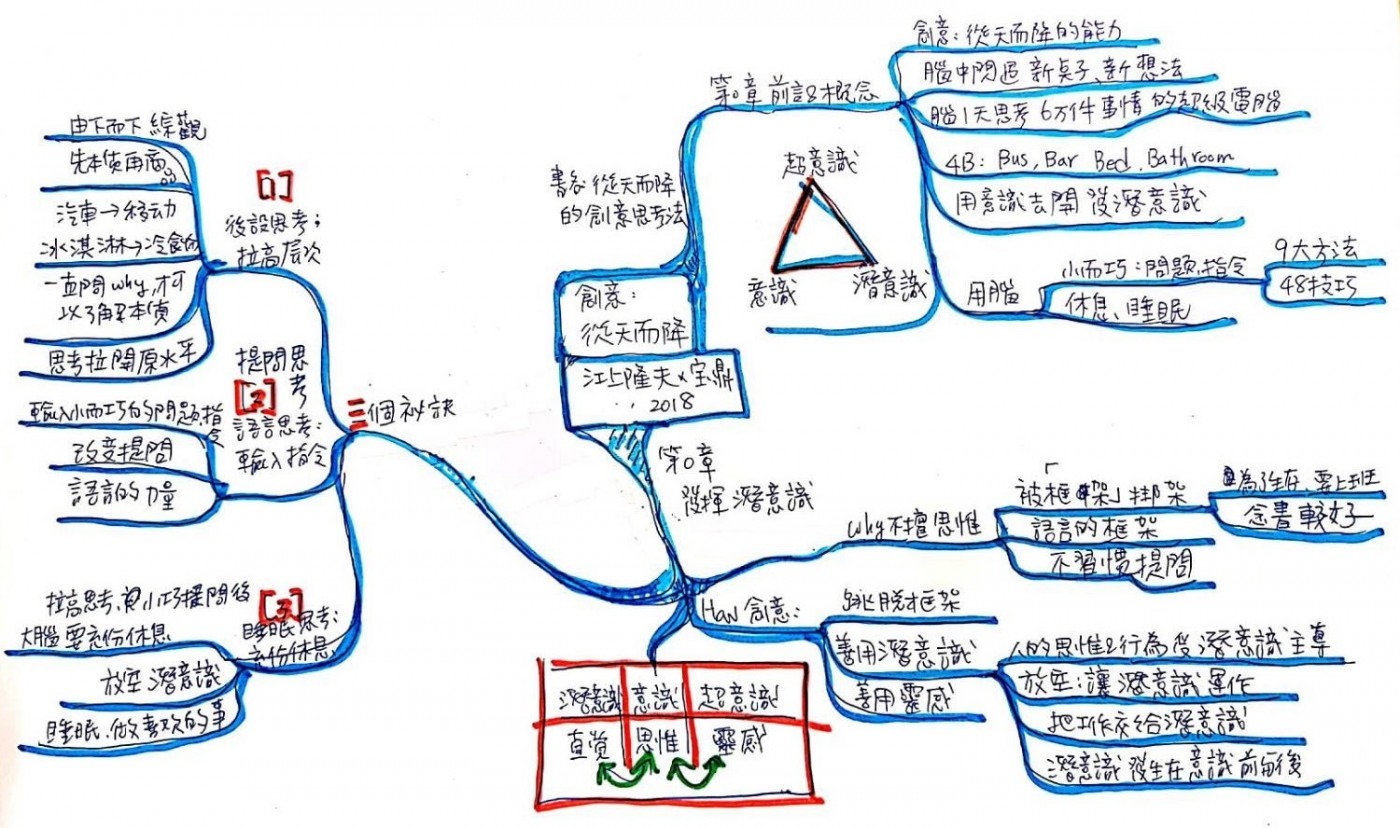 創意:從天而降的能力
腦中閃過 新点子、新想法
腦1天思考 6万件事情 的超級電腦
4B: Bus, Bar Bed, Bathroom
用意識去開發潛意識
用腦
小而巧:問題、指令
9大方法
48技巧
休息、睡眠
超意識
意識
潛意識
書名 從天而降
的創意思考法
創意:
從天而降
江上隆夫×宝鼎
2018
第0章
發揮潛意識
why不擅思惟
被框「架」掛架
為了生存、要上班
念書較好
語言的框架
不習慣提問
How 創意:
跳脫框架
善用潛意識
人的思惟&行為 後 潛意識主導
放空:讓潛意識運作
把工作交給潛意識
潛意識 發生在意識前
善用靈感
潛意識
意識
超意識
直覚
思惟
靈感
三個祕訣
[1]
後設思考:
拉高层次
由下而下 綜觀
先本質再
汽車→移动
冰淇淋→冷食的
一直問why,才可
以了解本質
思考拉開原水平
[2]
提問思
考
語言思考:
輸入指令
輸入小而巧的問題、指
令
改变提問
語言的力量
[3]
睡眠思考:
充份休息
拉高思考、小巧提問後
大腦要充份休息
放空 潛意識
睡眠、做喜欢的事